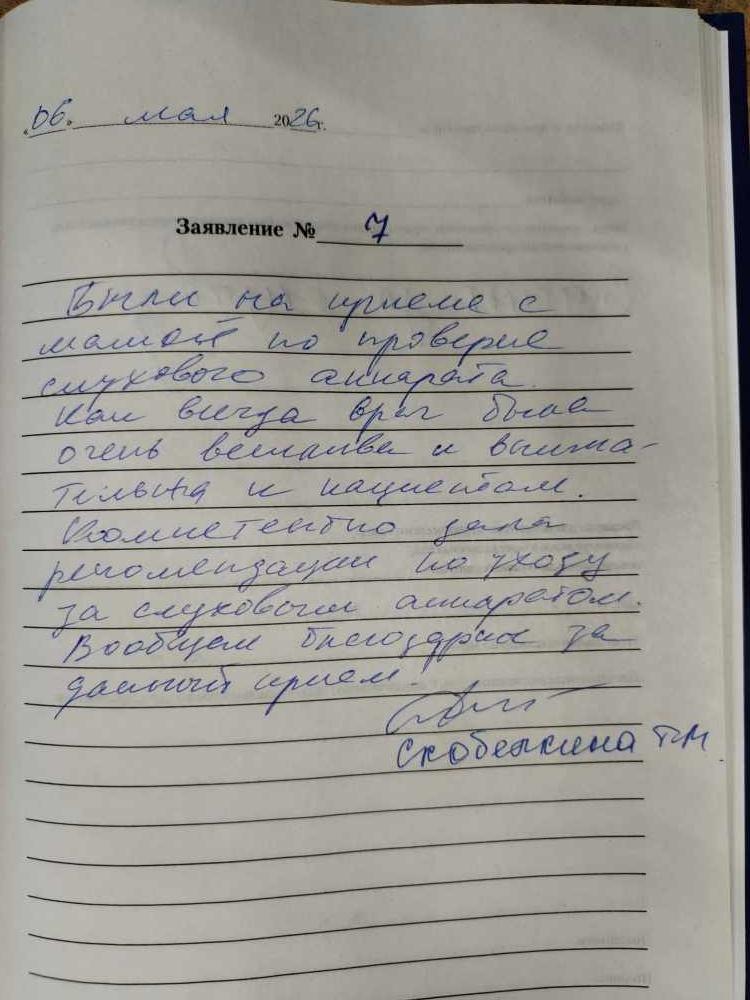 „06" мая 2026г.
Заявление № 7
Были на приеме с
мамой по проверке
слухового аппарата.
Как всегда врач была
очень вежлива и внима-
тельна к пациентам.
Компетентно дала
рекомендации по уходу
за слуховым аппаратом.
Вообщем благодарна за
данный прием.
Скобелкина Т.М.